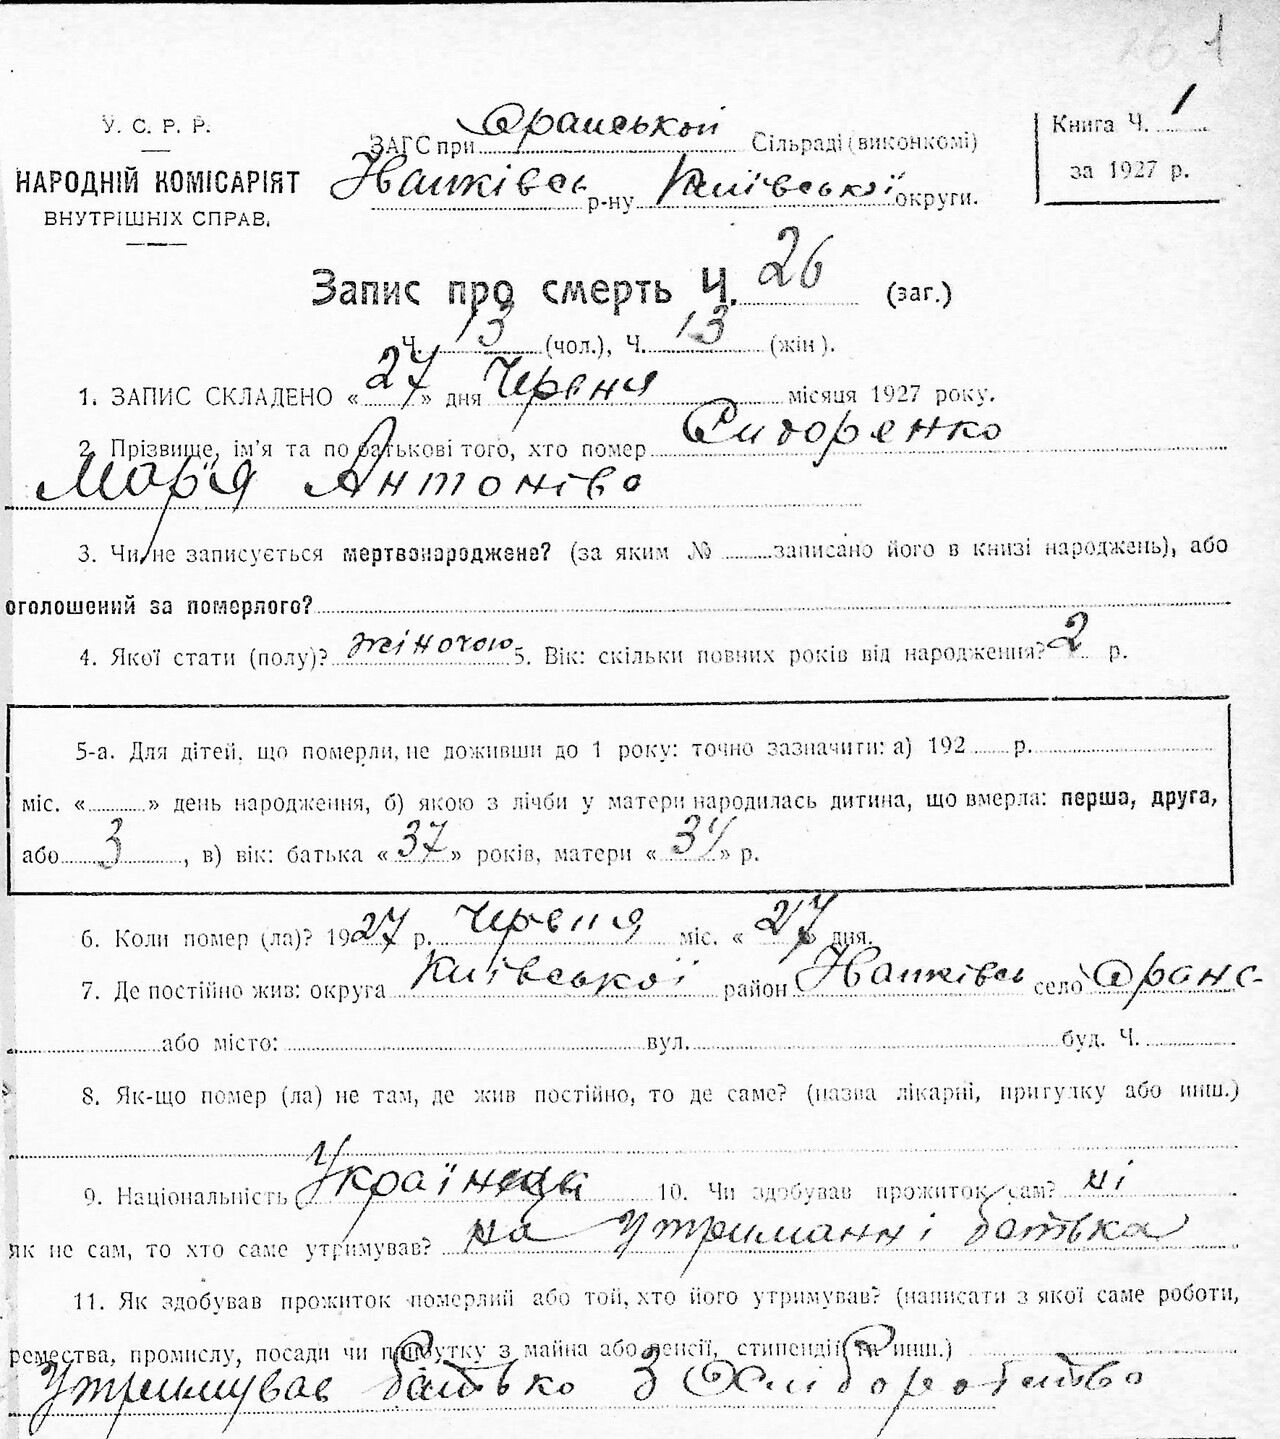 26 1
У. С. Р. Р.
НАРОДНІЙ КОМІСАРІЯТ
ВНУТРІШНІХ СПРАВ.
ЗАГС при Оранській Сільраді (виконкомі)
р-ну Київської округи.
Книга Ч. 1
за 1927 р.
Запис про смерть Ч. 26 (заг.)
Ч. 13 (чол.), Ч. 13 (жін).
1. ЗАПИС СКЛАДЕНО «27» дня Червня місяця 1927 року.
2. Прізвище, ім'я та по батькові того, хто помер Сидоренко
Мар'я Антоніво
3. Чи не записується мертвонароджене? (за яким № записано його в книзі народжень), або
оголошений за померлого?
4. Якої стати (полу)? жіночою 5. Вік: скільки повних років від народження? 2 р.
5-а. Для дітей, що померли, не доживши до 1 року: точно зазначити: а) 192 р.
міс. « » день народження, б) якою з лічби у матери народилась дитина, що вмерла: перша, друга,
або 3, в) вік: батька «37» років, матери «34» р.
6. Коли помер (ла)? 1927 р. Червня міс. «27» дня.
7. Де постійно жив: округа Київської район село Оранс-
або місто: вул. буд. Ч.
8. Як-що помер (ла) не там, де жив постійно, то де саме? (назва лікарні, притулку або инш.)
9. Національність 10. Чи здобував прожиток сам? ні
як не сам, то хто саме утримував? на утриманні батька
11. Як здобував прожиток померлий або той, хто його утримував? (написати з якої саме роботи,
ремества, промислу, посади чи прибутку з майна або пенсії, стипендії та инш.)
Утримував батько З Хліборобство